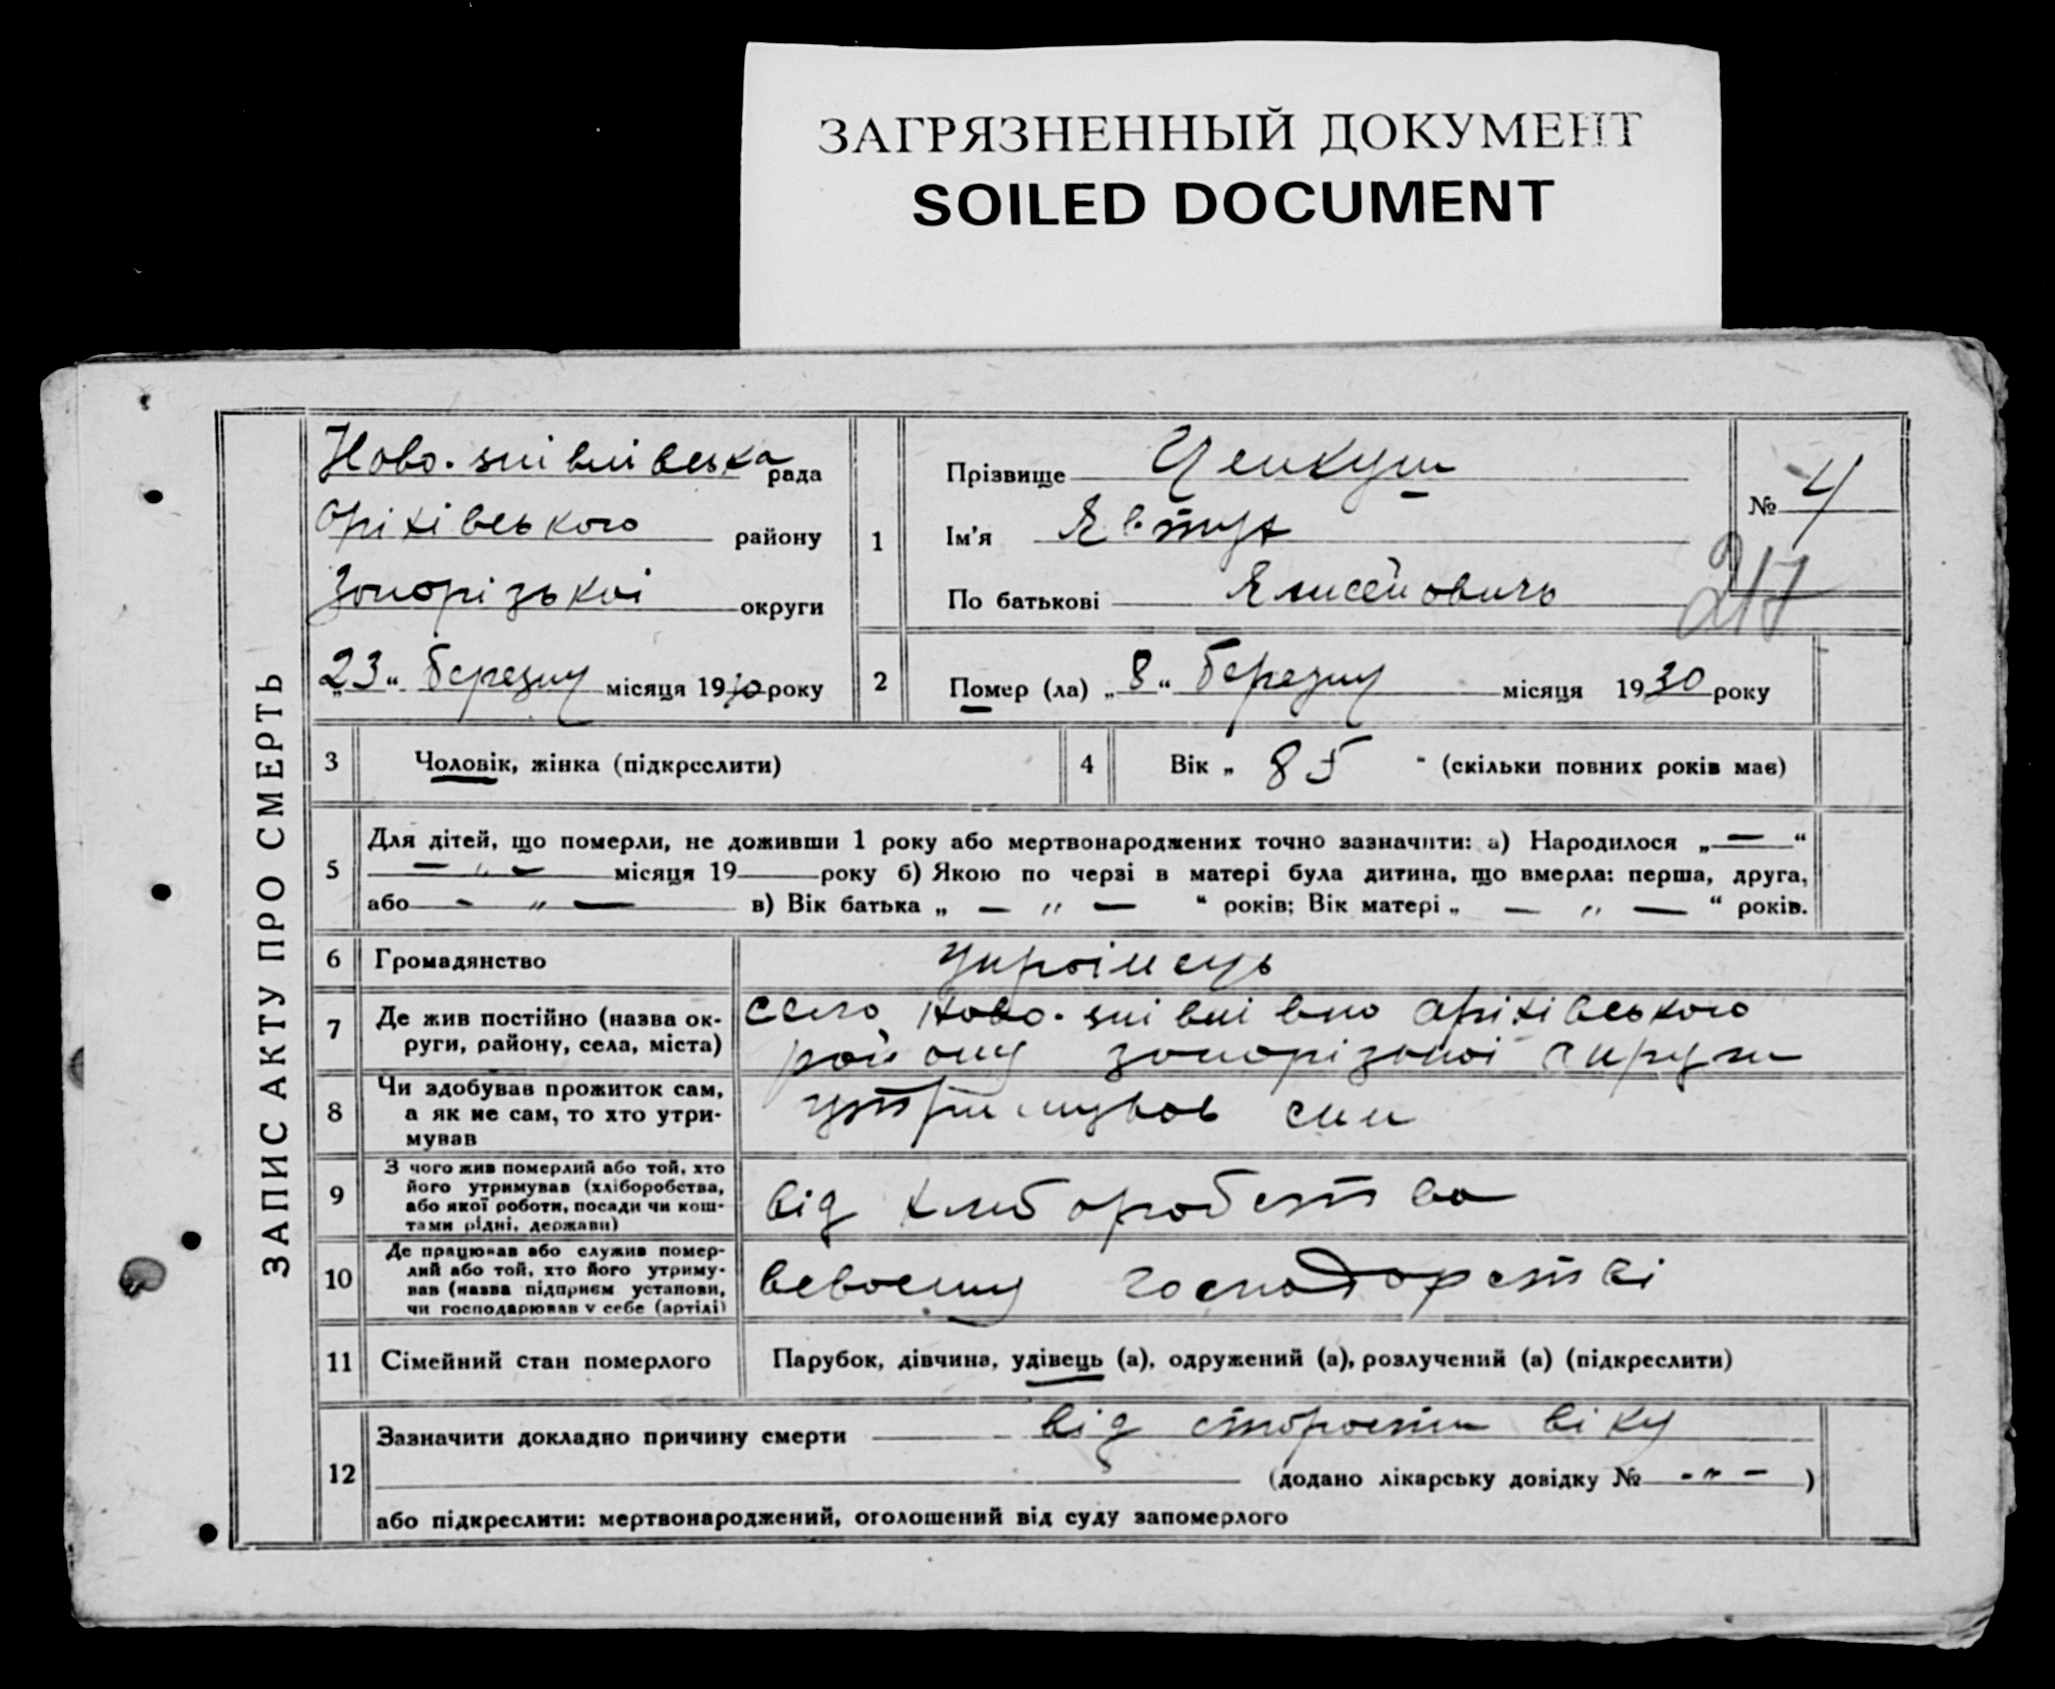 ЗАГРЯЗНЕННЫЙ ДОКУМЕНТ
SOILED DOCUMENT
ЗАПИС АКТУ ПРО СМЕРТЬ
Ново-знівнівська рада
Оріхівського району
Запорізької округи
„23“ березня місяця 1930 року
1
Прізвище
Ім'я Явтух
По батькові Елисейович
№ 4
217
2 Помер (ла) „8“ березня місяця 1930 року
3 Чоловік, жінка (підкреслити)
4 Вік „ 85 “ (скільки повних років має)
5 Для дітей, що померли, не доживши 1 року або мертвонароджених точно зазначити: а) Народилося „ — “
— „ — місяця 19 року б) Якою по черзі в матері була дитина, що вмерла: перша, друга,
або - „ — в) Вік батька „ — „ — “ років; Вік матері „ — „ — “ років.
6 Громадянство українець
7 Де жив постійно (назва ок-
руги, району, села, міста)
село Ново-знівнівно Оріхівського
району Запорізької округи
8 Чи здобував прожиток сам,
а як не сам, то хто утри-
мував
утримував син
9 З чого жив померлий або той, хто
його утримував (хліборобства,
або якої роботи, посади чи кош-
тами рідні, держави)
від хліборобства
10 Де працював або служив помер-
лий або той, хто його утриму-
вав (назва підприєм установи,
чи господарював у себе (артілі)
всвоєму господорстві
11 Сімейний стан померлого Парубок, дівчина, удівець (а), одружений (а), розлучений (а) (підкреслити)
12 Зазначити докладно причину смерти від старости віку
(додано лікарську довідку № - „ - )
або підкреслити: мертвонароджений, оголошений від суду запомерлого